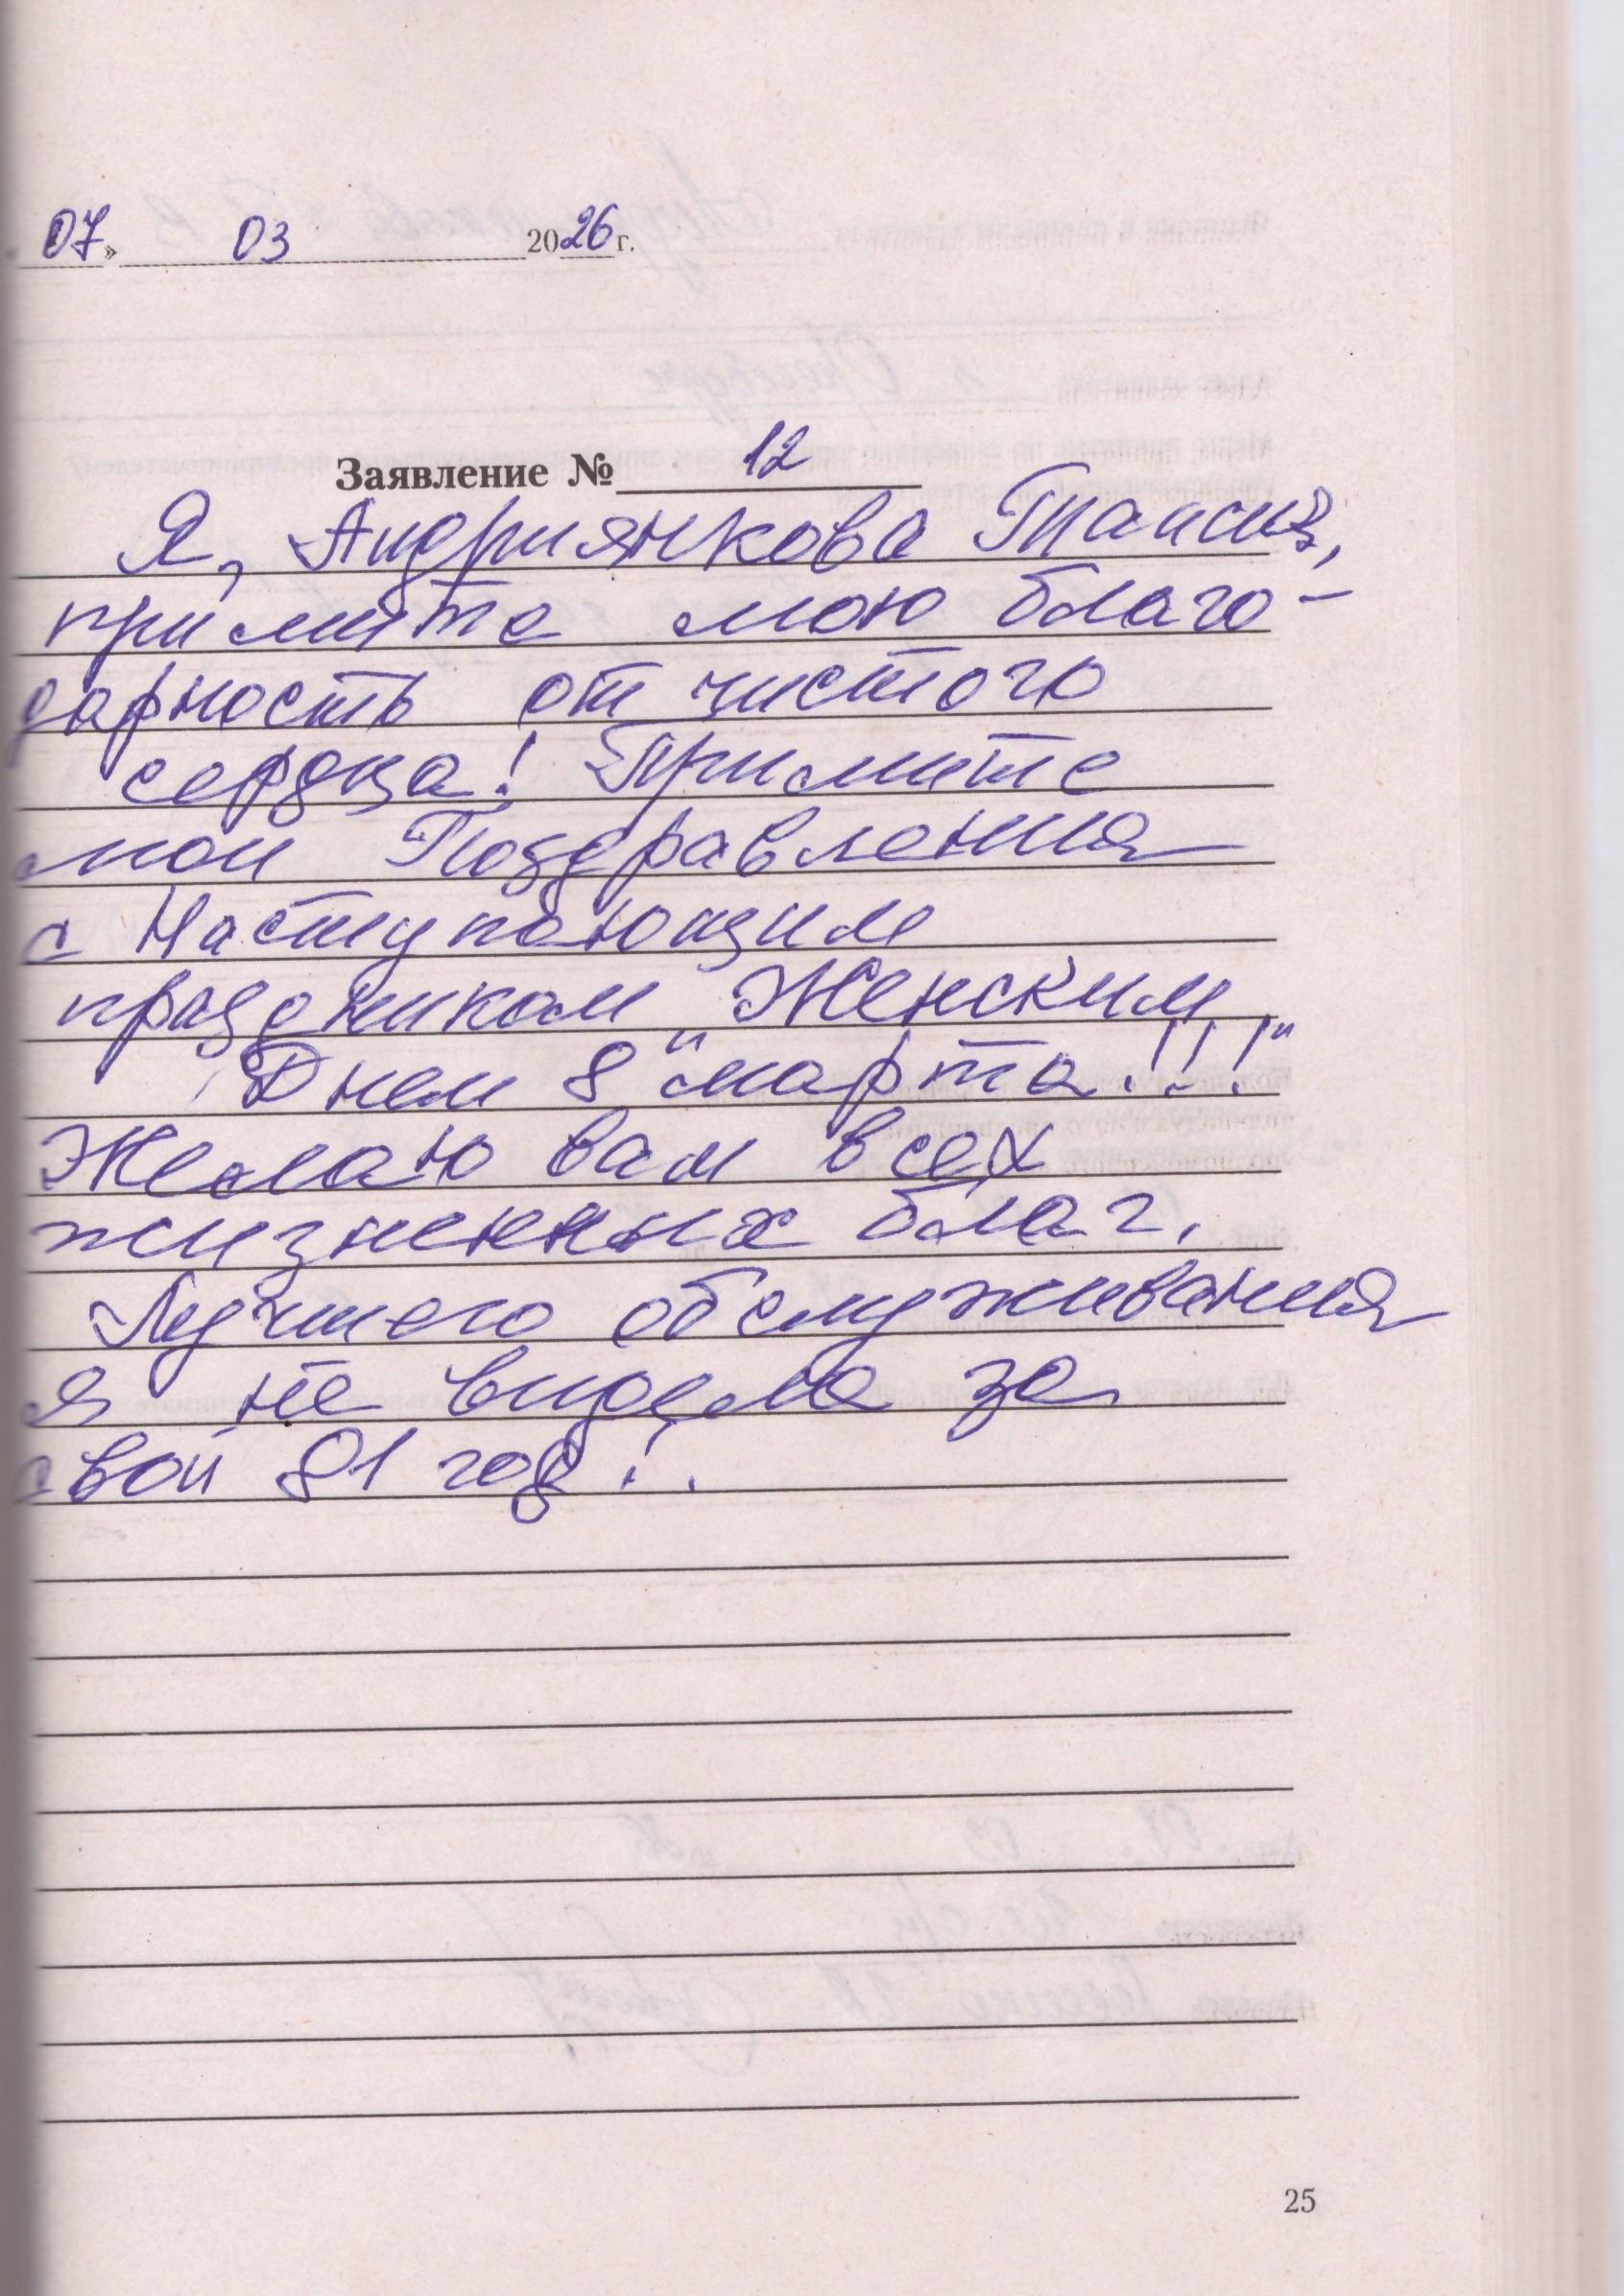 07» 03 2026 г.
Заявление № 12
Я, Андриянкова Таисия,
примите мою благо-
дарность от чистого
сердца! Примите
мои Поздравления
с Наступающим
праздником „Женским
Днем 8 марта!!!"
Желаю вам всех
жизненных благ.
Лучшего обслуживания
я не видела за
свой 81 год!.
25